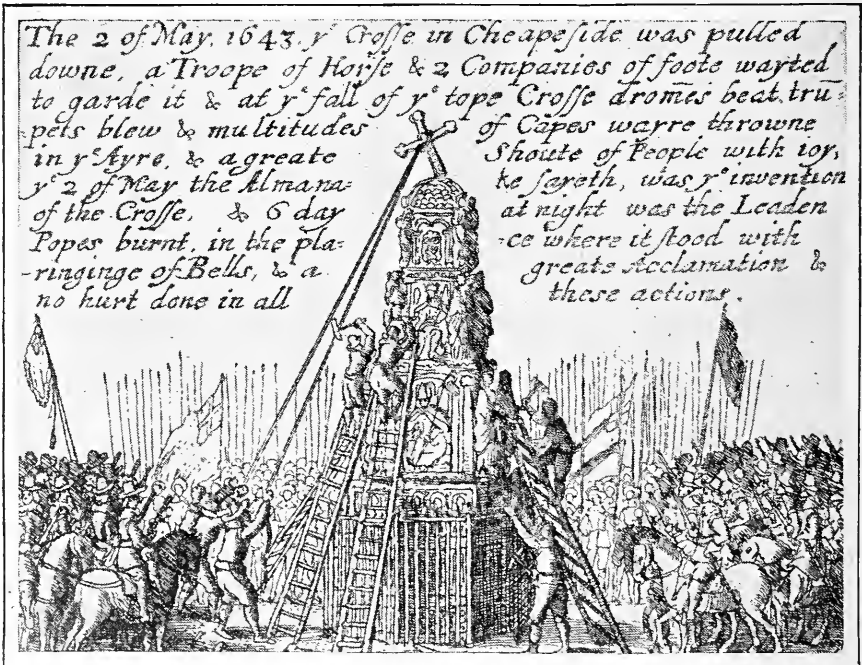 The 2 of May. 1643. yᵉ Croſſe in Cheapeſide was pulled
downe, a Troope of Horſe & 2 Companies of foote wayted
to garde it & at yᵉ fall of yᵉ tope Croſſe dromẽs beat. trũ-
pets blew & multitudes of Càpes warre throwne
in yᵉ Ayre, & a greate Shoute of People with ioy,
yᵉ 2 of May the Almana- ke ſayeth, was yᵉ invention
of the Croſſe, & 6 day at night was the Leaden
Popes burnt. in the pla- -ce where it ſtood with
-ringinge of Bells, & a greate Acclamation &
no hurt done in all theſe actions.